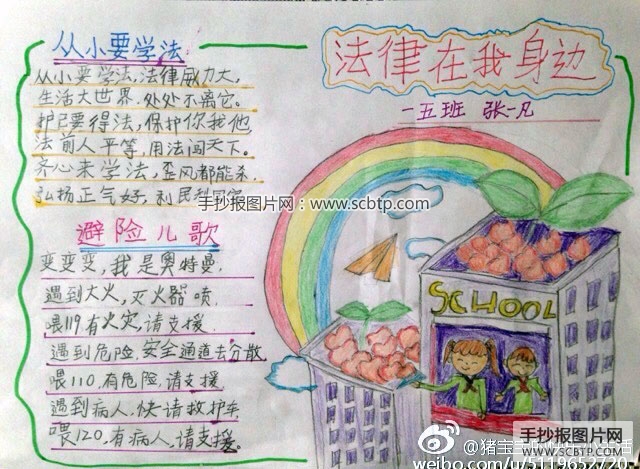 从小要学法
从小要学法,法律威力大,
生活大世界.处处不离它。
护已要得法,保护你我他
法前人平等,用法闯天下。
齐心来学法,歪风都能杀.
弘扬正气好,利民利国家
避险儿歌
变变变,我是奥特曼.
遇到大火,灭火器喷.
喂119有火灾,请支援.
遇到危险,安全通道去分散
喂110.有危险,请支援
遇到病人.快请救护车.
喂120.有病人,请支援。
法律在我身边
一五班 张一凡
手抄报图片网:www.scbtp.com
SCHOOL
手抄报图片网
WWW.SCBTP.COM